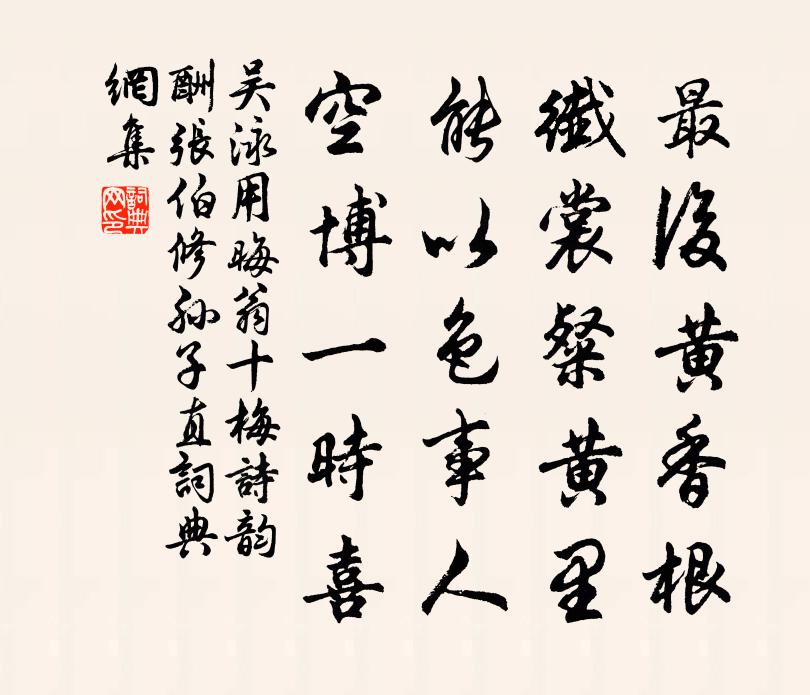 最後黃香根
纖裳粲黃里
能以色事人
空博一時喜
吴泳用晦翁十梅詩韵
酬張伯修孫子直詞典
網集
詞典網印